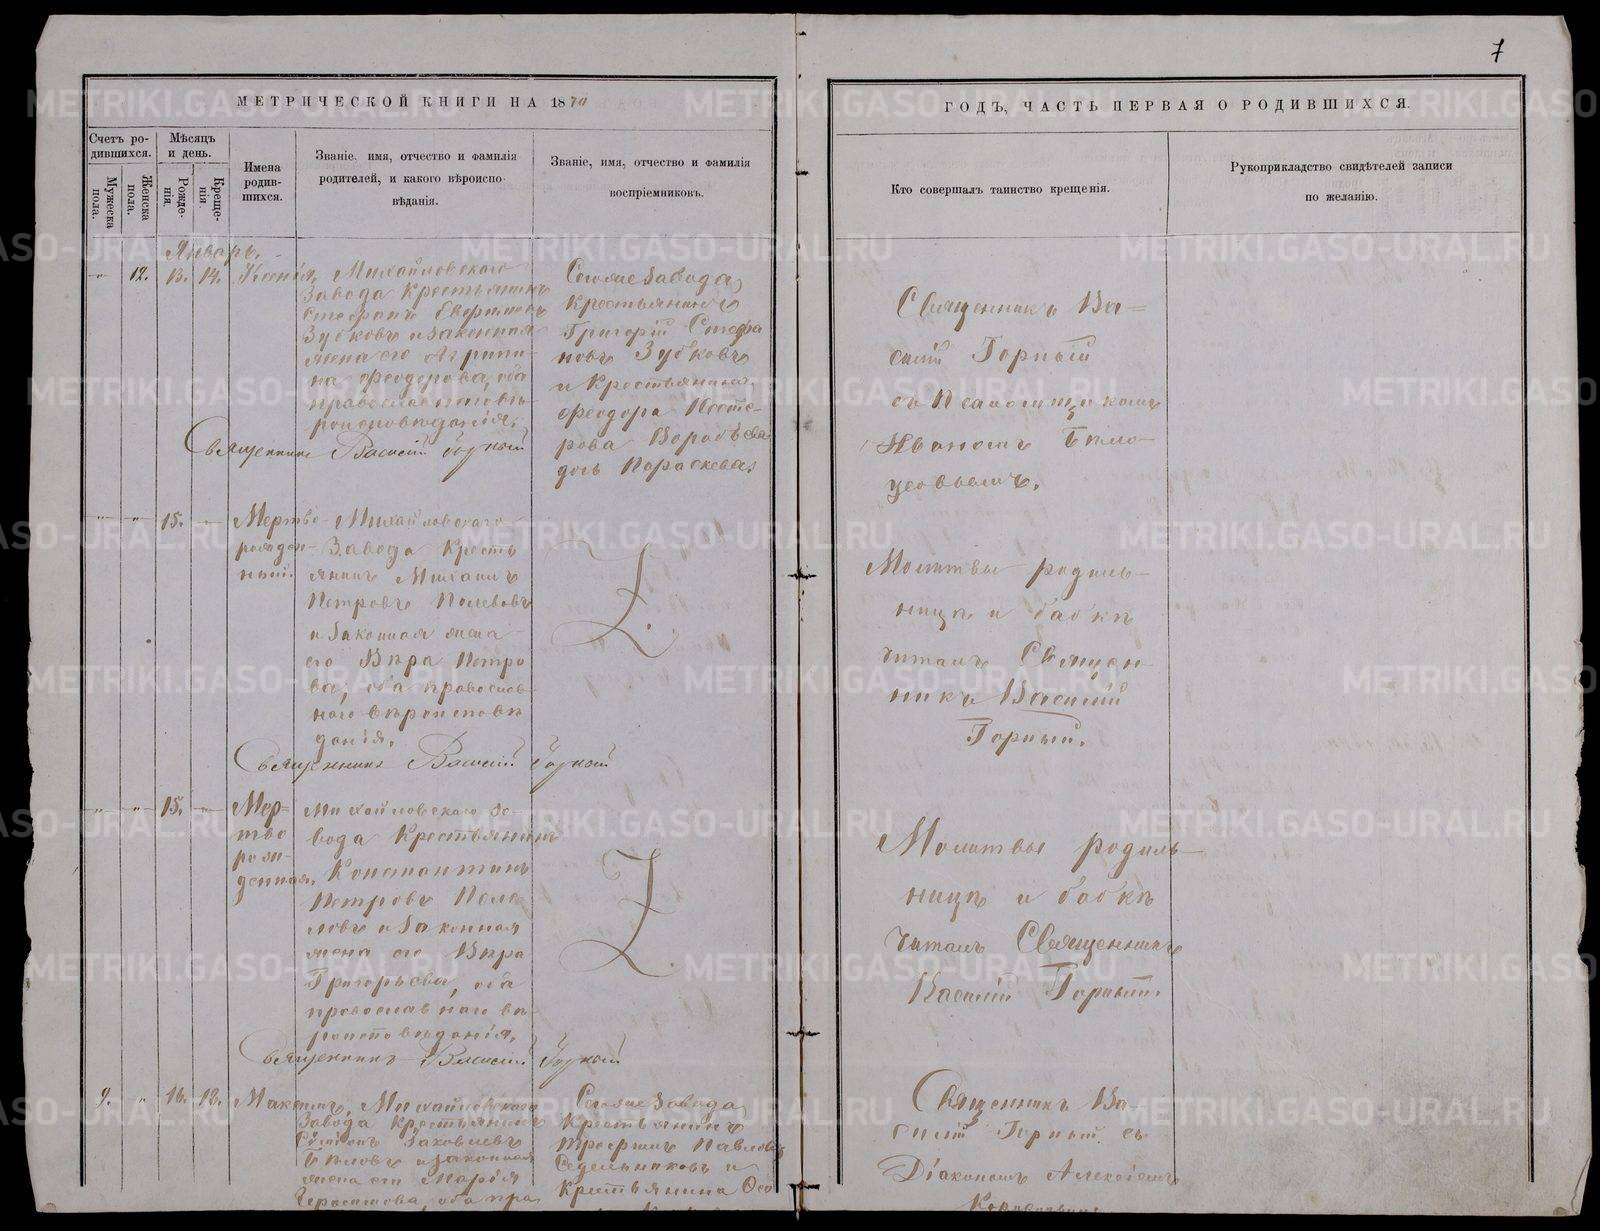 7
МЕТРИЧЕСКОЙ КНИГИ НА 1870
ГОДЪ, ЧАСТЬ ПЕРВАЯ О РОДИВШИХСЯ.
Счетъ ро-
дившихся.
Мужеска
пола.
Женска
пола.
Мѣсяцъ
и день.
Рожде-
нія.
Креще-
нія.
Имена
родив-
шихся.
Званіе, имя, отчество и фамилія
родителей, и какого вѣроиспо-
вѣданія.
Званіе, имя, отчество и фамилія
воспріемниковъ.
Кто совершалъ таинство крещенія.
Рукоприкладство свидѣтелей записи
по желанію.
Январь.
" 12. 13. 14. Ксенія,
Михайловскаго
Завода Крестьянинъ
Стефанъ
Зубковъ и законная
жена его Агрипи-
на Феодорова, оба
православнаго вѣ-
роисповѣданія.
Священникъ Василий Горный
Тогоже Завода
Крестьянинъ
Григорій Стефа
новъ Зубковъ
и Крестьянина
Феодора Несте-
рова Воробьева
дочь Параскева.
Священникъ Ва=
силій Горный
съ Псаломщикомъ
Иваномъ Бѣло-
усовымъ.
" " 15. " Мертво-
рожден-
ный.
Михайловскаго
Завода Кресть
янинъ Михаилъ
Петровъ Полевовъ
и законная жена
его Вѣра Петро
ва, оба православ-
наго вѣроисповѣ
данія.
Священникъ Василий Горный
Молитвы родиль-
ницѣ и бабкѣ
читалъ Священ-
никъ Василій
Горный.
" " 15. " Мер-
тво
рож-
денная.
Михайловскаго за-
вода Крестьянинъ
Константинъ
Петровъ Поле
вовъ и законная
жена его Вѣра
Григорьева, оба
православнаго вѣ-
роисповѣданія.
Священникъ Василий Горный
Молитвы родиль-
ницѣ и бабкѣ
читалъ Священникъ
Василій Горный.
9. " 16. 18. Максимъ,
Михайловскаго
Завода Крестьянинъ
и законная
жена его Марѳія
оба пра
Тогоже Завода
Крестьянинъ
Трофимъ Павловъ
Седельниковъ и
Крестьянина
Священникъ Ва
силій Горный съ
Діакономъ Алексіемъ
METRIKI.GASO-URAL.RU